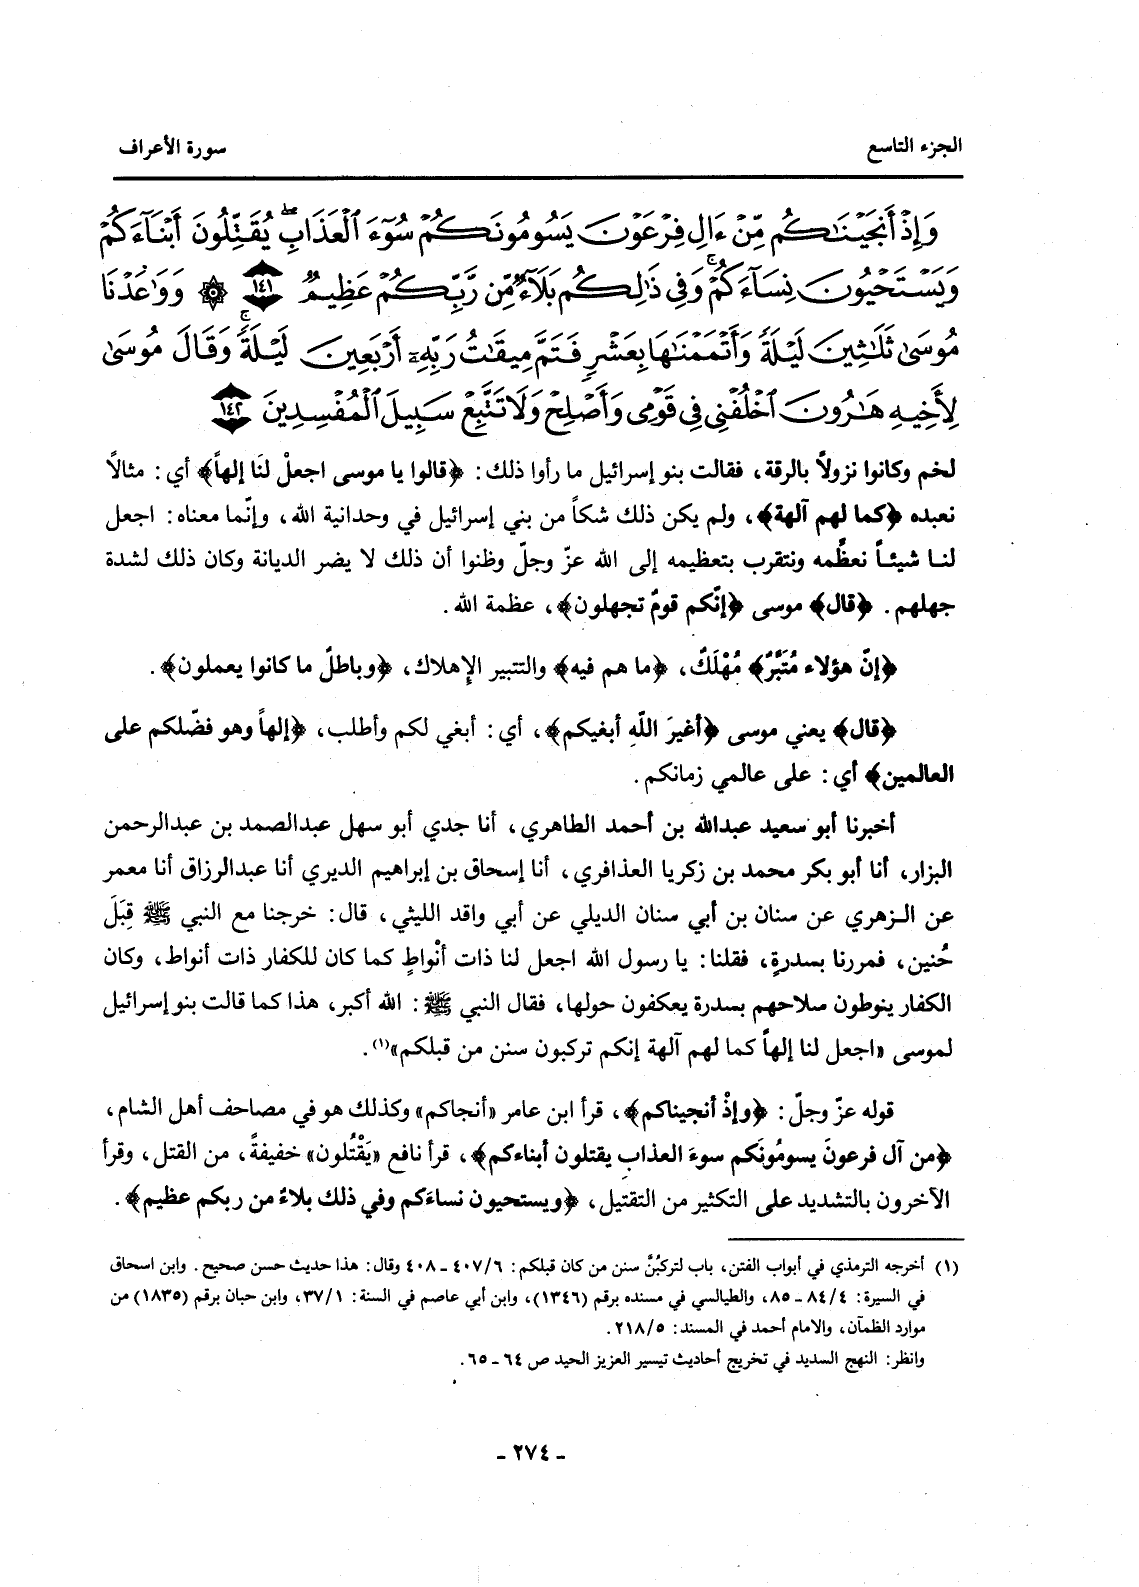 الجزء التاسع
سورة الأعراف
وَإِذْ أَنجَيْنَٰكُم مِّنْ ءَالِ فِرْعَوْنَ يَسُومُونَكُمْ سُوٓءَ ٱلْعَذَابِ ۖ يُقَتِّلُونَ أَبْنَآءَكُمْ
وَيَسْتَحْيُونَ نِسَآءَكُمْ ۚ وَفِى ذَٰلِكُم بَلَآءٌ مِّن رَّبِّكُمْ عَظِيمٌ ١٤١ ۞ وَوَٰعَدْنَا
مُوسَىٰ ثَلَٰثِينَ لَيْلَةً وَأَتْمَمْنَٰهَا بِعَشْرٍ فَتَمَّ مِيقَٰتُ رَبِّهِۦٓ أَرْبَعِينَ لَيْلَةً ۚ وَقَالَ مُوسَىٰ
لِأَخِيهِ هَٰرُونَ ٱخْلُفْنِى فِى قَوْمِى وَأَصْلِحْ وَلَا تَتَّبِعْ سَبِيلَ ٱلْمُفْسِدِينَ ١٤٢
لخم وكانوا نزولاً بالرقة، فقالت بنو إسرائيل ما رأوا ذلك: ﴿قالوا يا موسى اجعلْ لنَا إلهاً﴾ أي: مثالاً
نعبده ﴿كما لهم آلهة﴾، ولم يكن ذلك شكاً من بني إسرائيل في وحدانية الله، وإنّما معناه: اجعل
لنا شيئاً نعظِّمه ونتقرب بتعظيمه إلى الله عزّ وجلّ وظنوا أن ذلك لا يضر الديانة وكان ذلك لشدة
جهلهم. ﴿قال﴾ موسى ﴿إنّكم قومٌ تجهلون﴾، عظمة الله.
﴿إنّ هؤلاء مُتَبَّرٌ﴾ مُهْلَكٌ، ﴿ما هم فيه﴾ والتتبير الإهلاك، ﴿وباطلٌ ما كانوا يعملون﴾.
﴿قال﴾ يعني موسى ﴿أغيرَ اللّهِ أبغيكم﴾، أي: أبغي لكم وأطلب، ﴿إلهاً وهو فضّلكم على
العالمين﴾ أي: على عالمي زمانكم.
أخبرنا أبو سعيد عبدالله بن أحمد الطاهري، أنا جدي أبو سهل عبدالصمد بن عبدالرحمن
البزار، أنا أبو بكر محمد بن زكريا العذافري، أنا إسحاق بن إبراهيم الديري أنا عبدالرزاق أنا معمر
عن الزهري عن سنان بن أبي سنان الديلي عن أبي واقد الليثي، قال: خرجنا مع النبي ﷺ قِبَلَ
حُنين، فمررنا بسدرةٍ، فقلنا: يا رسول الله اجعل لنا ذات أنْواطٍ كما كان للكفار ذات أنواط، وكان
الكفار ينوطون سلاحهم بسدرة يعكفون حولها، فقال النبي ﷺ: الله أكبر، هذا كما قالت بنو إسرائيل
لموسى «اجعل لنا إلهاً كما لهم آلهة إنكم تركبون سنن من قبلكم»(١).
قوله عزّ وجلّ: ﴿وإذْ أنجيناكم﴾، قرأ ابن عامر «أنجاكم» وكذلك هو في مصاحف أهل الشام،
﴿من آل فرعونَ يسومُونَكم سوءَ العذاب يقتلون أبناءكم﴾، قرأ نافع «يَقْتُلون» خفيفةً، من القتل، وقرأ
الآخرون بالتشديد على التكثير من التقتيل، ﴿ويستحيون نساءَكم وفي ذلك بلاءٌ من ربكم عظيم﴾.
(١) أخرجه الترمذي في أبواب الفتن، باب لتركبُنَّ سنن من كان قبلكم: ٤٠٧/٦ ـ ٤٠٨ وقال: هذا حديث حسن صحيح. وابن اسحاق
في السيرة: ٨٤/٤ ـ ٨٥، والطيالسي في مسنده برقم (١٣٤٦)، وابن أبي عاصم في السنة: ٣٧/١، وابن حبان برقم (١٨٣٥) من
موارد الظمآن، والامام أحمد في المسند: ٢١٨/٥.
وانظر: النهج السديد في تخريج أحاديث تيسير العزيز الحيد ص ٦٤ ـ ٦٥.
- ٢٧٤ -